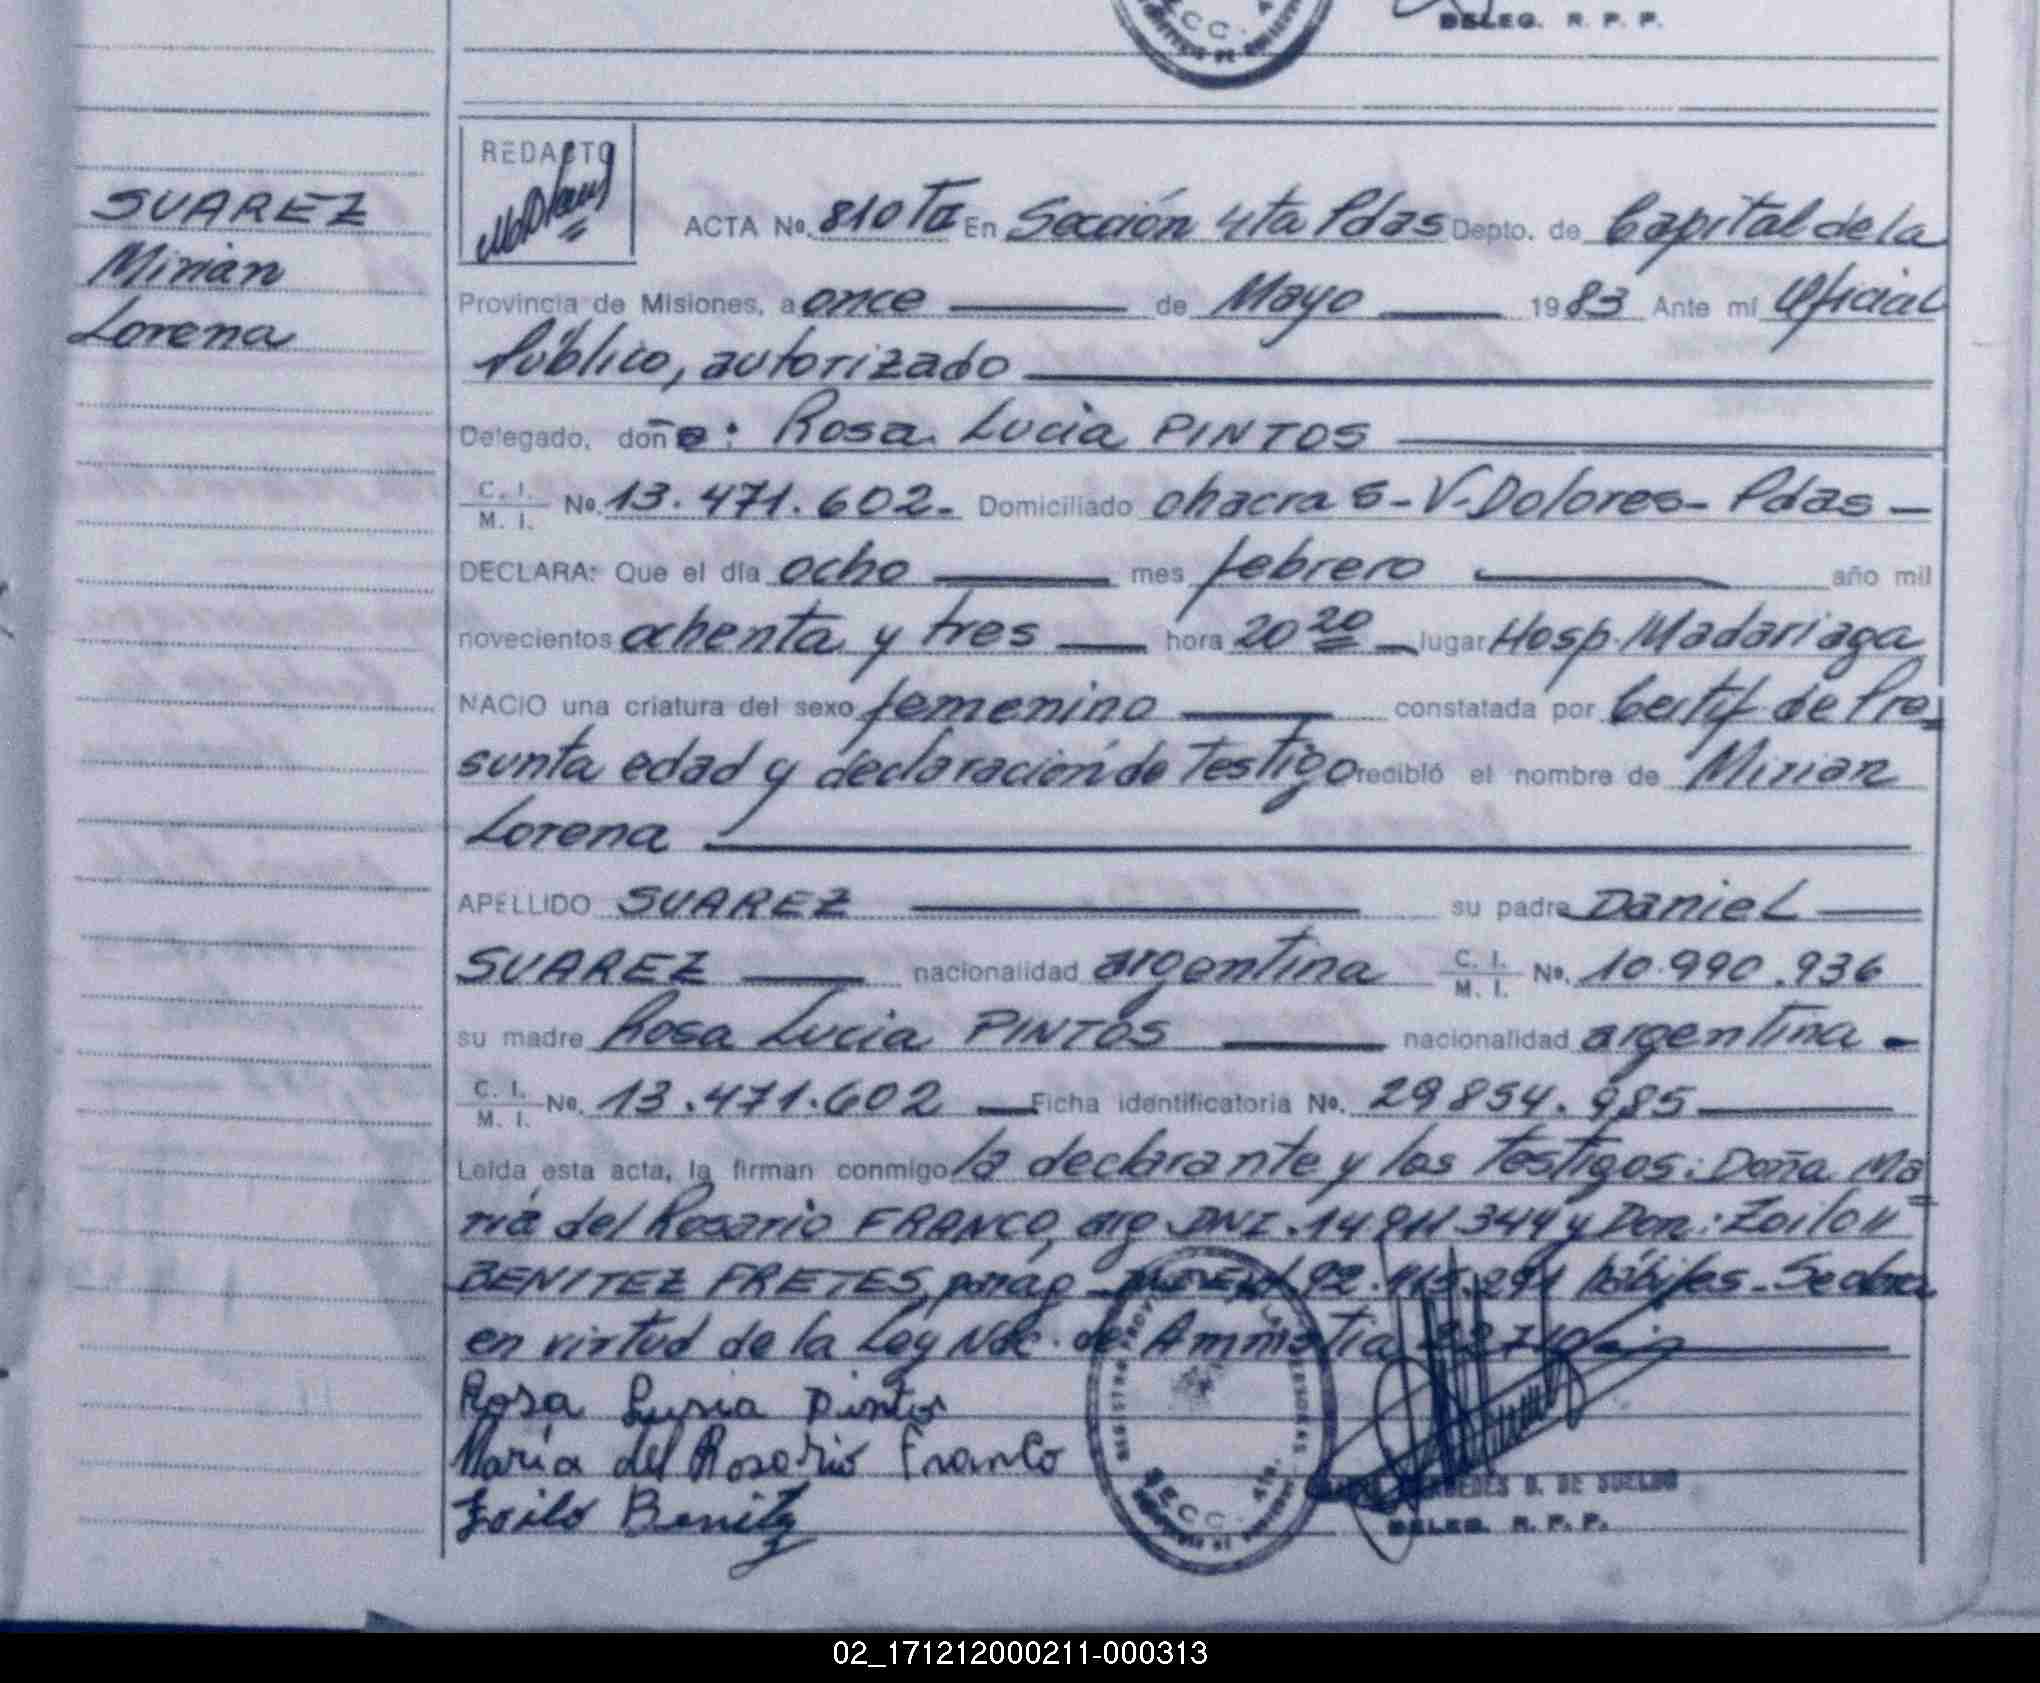 DELEG. R. P. P.
SUAREZ
Mirian
Lorena
REDACTO
ACTA No. 810 Ta En Sección 4ta Pdas Depto. de Capital de la
Provincia de Misiones, a once de Mayo 1983 Ante mí Oficial
Público, autorizado
Delegado, doña: Rosa Lucia PINTOS
C. I. / M. I. No. 13.471.602. Domiciliado chacra 5 - V. Dolores - Pdas -
DECLARA: Que el día ocho mes febrero año mil
novecientos ochenta y tres hora 20 20 lugar Hosp. Madariaga
NACIO una criatura del sexo femenino constatada por Certif de Pre-
sunta edad y declaración de Testigo recibió el nombre de Mirian
Lorena
APELLIDO SUAREZ su padre Daniel
SUAREZ nacionalidad argentina C. I. / M. I. No. 10.990.936
su madre Rosa Lucia PINTOS nacionalidad argentina -
C. I. / M. I. No. 13.471.602 Ficha identificatoria No. 29854.985
Leída esta acta, la firman conmigo la declarante y los Testigos: Doña Ma
ría del Rosario FRANCO, arg DNI. 14911344 y Don: Zoilo
BENITEZ FRETES, parag hábiles - Se labra
en virtud de la Ley Nac. de Amnistía 22710
Rosa Lucia Pintos
María del Rosario Franco
Zoilo Benitez
S.E.C.C. 4ta.
D. DE SUELDO
DELEG. R. P. P.
02_171212000211-000313